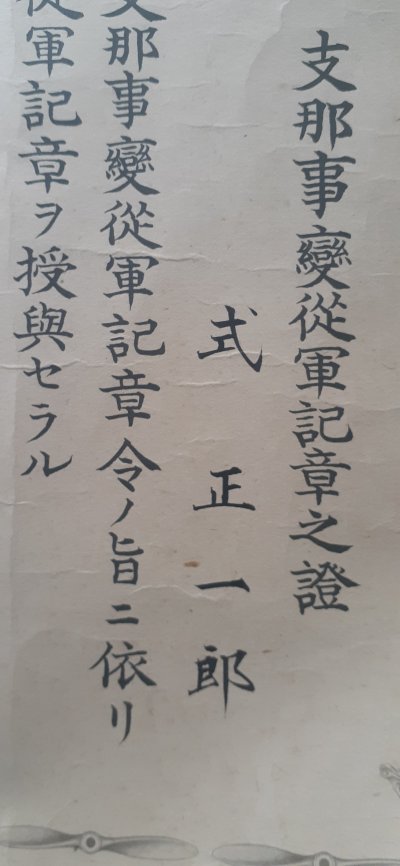 支那事變從軍記章之證
式正一郎
支那事變從軍記章令ノ旨ニ依リ
從軍記章ヲ授與セラル